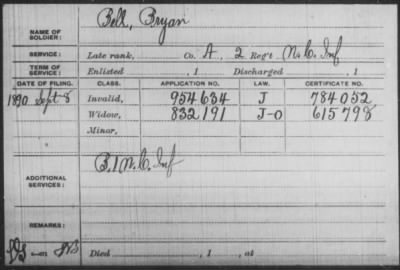 Bell, Bryan
NAME OF SOLDIER:
SERVICE: Late rank, Co. A, 2 Reg't N.C. Inf
TERM OF SERVICE: Enlisted , 1 Discharged , 1
DATE OF FILING. CLASS. APPLICATION NO. LAW. CERTIFICATE NO.
1890 Sept 8 Invalid, 954634 J 784052
Widow, 832191 J-O 615798
Minor,
B. 1 N.C. Inf
ADDITIONAL SERVICES:
REMARKS:
Died , 1 , at